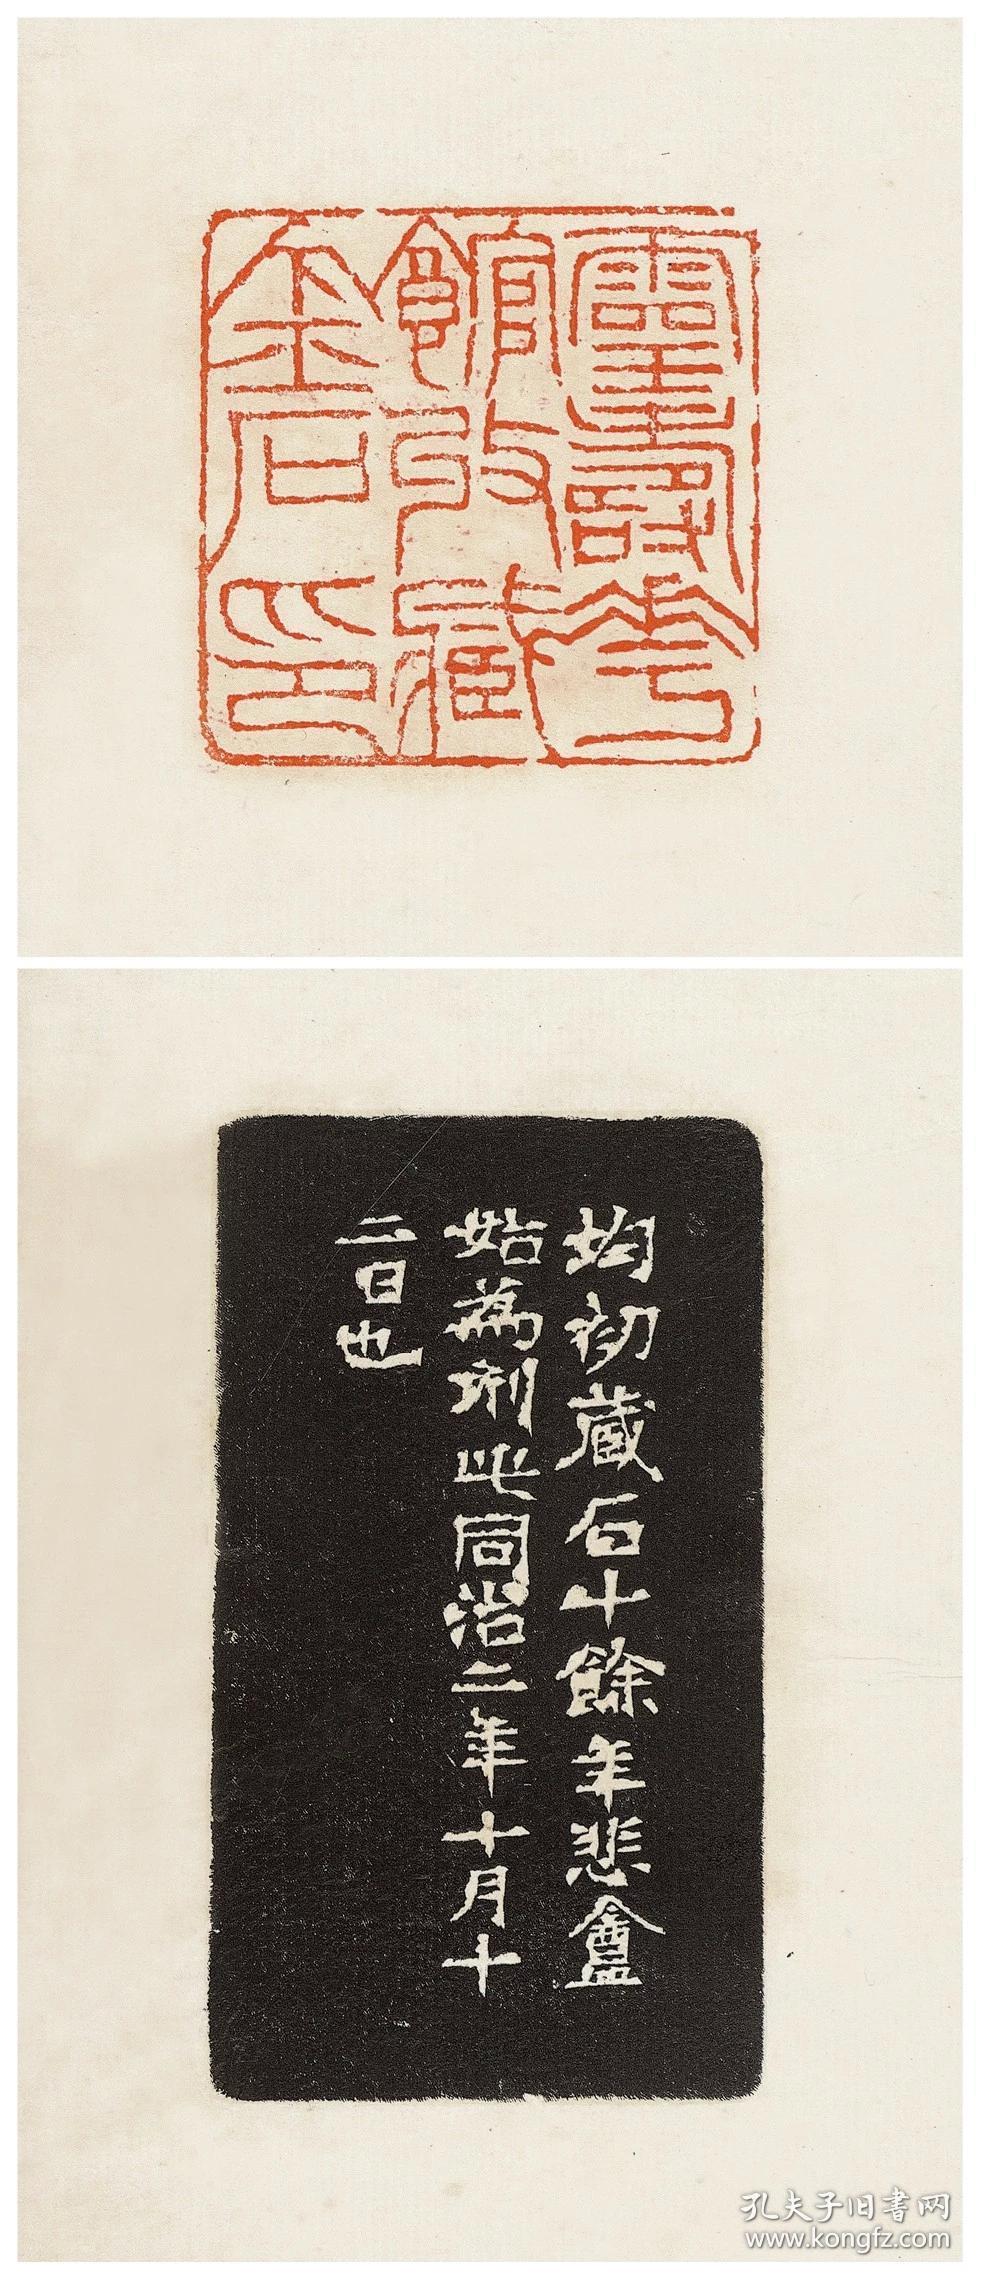 靈壽花
館收藏
金石印
均初藏石十餘年悲盦
始爲刜此同治二年十月十
二日也
孔夫子旧書网
www.kongfz.com